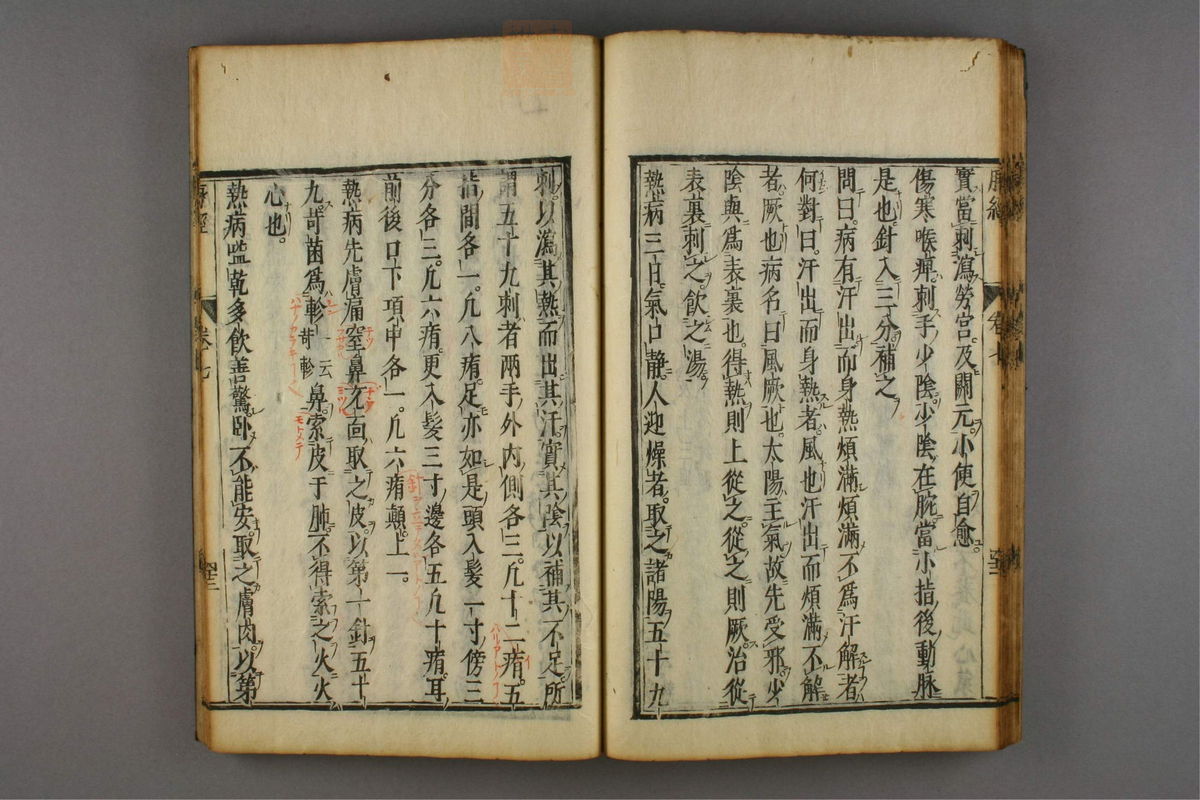 實當刺瀉勞宮及關元小便自愈。
傷寒喉痺刺手少陰少陰在腕當小指後動脉
是也針入三分補之
問曰病有汗出而身熱煩滿煩滿不爲汗解者
何對曰汗出而身熱者風也汗出而煩滿不解
者厥也病名曰風厥也太陽主氣故先受邪少
陰與爲表裏也得熱則上從之從之則厥治從
表裏刺之飲之湯
熱病三日氣口静人迎燥者取之諸陽五十九
刺以瀉其熱而出其汗實其陰以補其不足所
謂五十九刺者兩手外内側各三凡十二痏五
指間各一凡八痏足亦如是頭入髮一寸傍三
分各三凡六痏更入髮三寸邊各五凡十痏耳
前後口下項中各一凡六痏顛上一。
熱病先膚痛窒鼻充面取之皮以第一針五十
九苛菌爲軫一云苛軫鼻索皮于肺不得索之火火
心也。
熱病嗌乾多飲善驚卧不能安取之膚肉以第
卷七